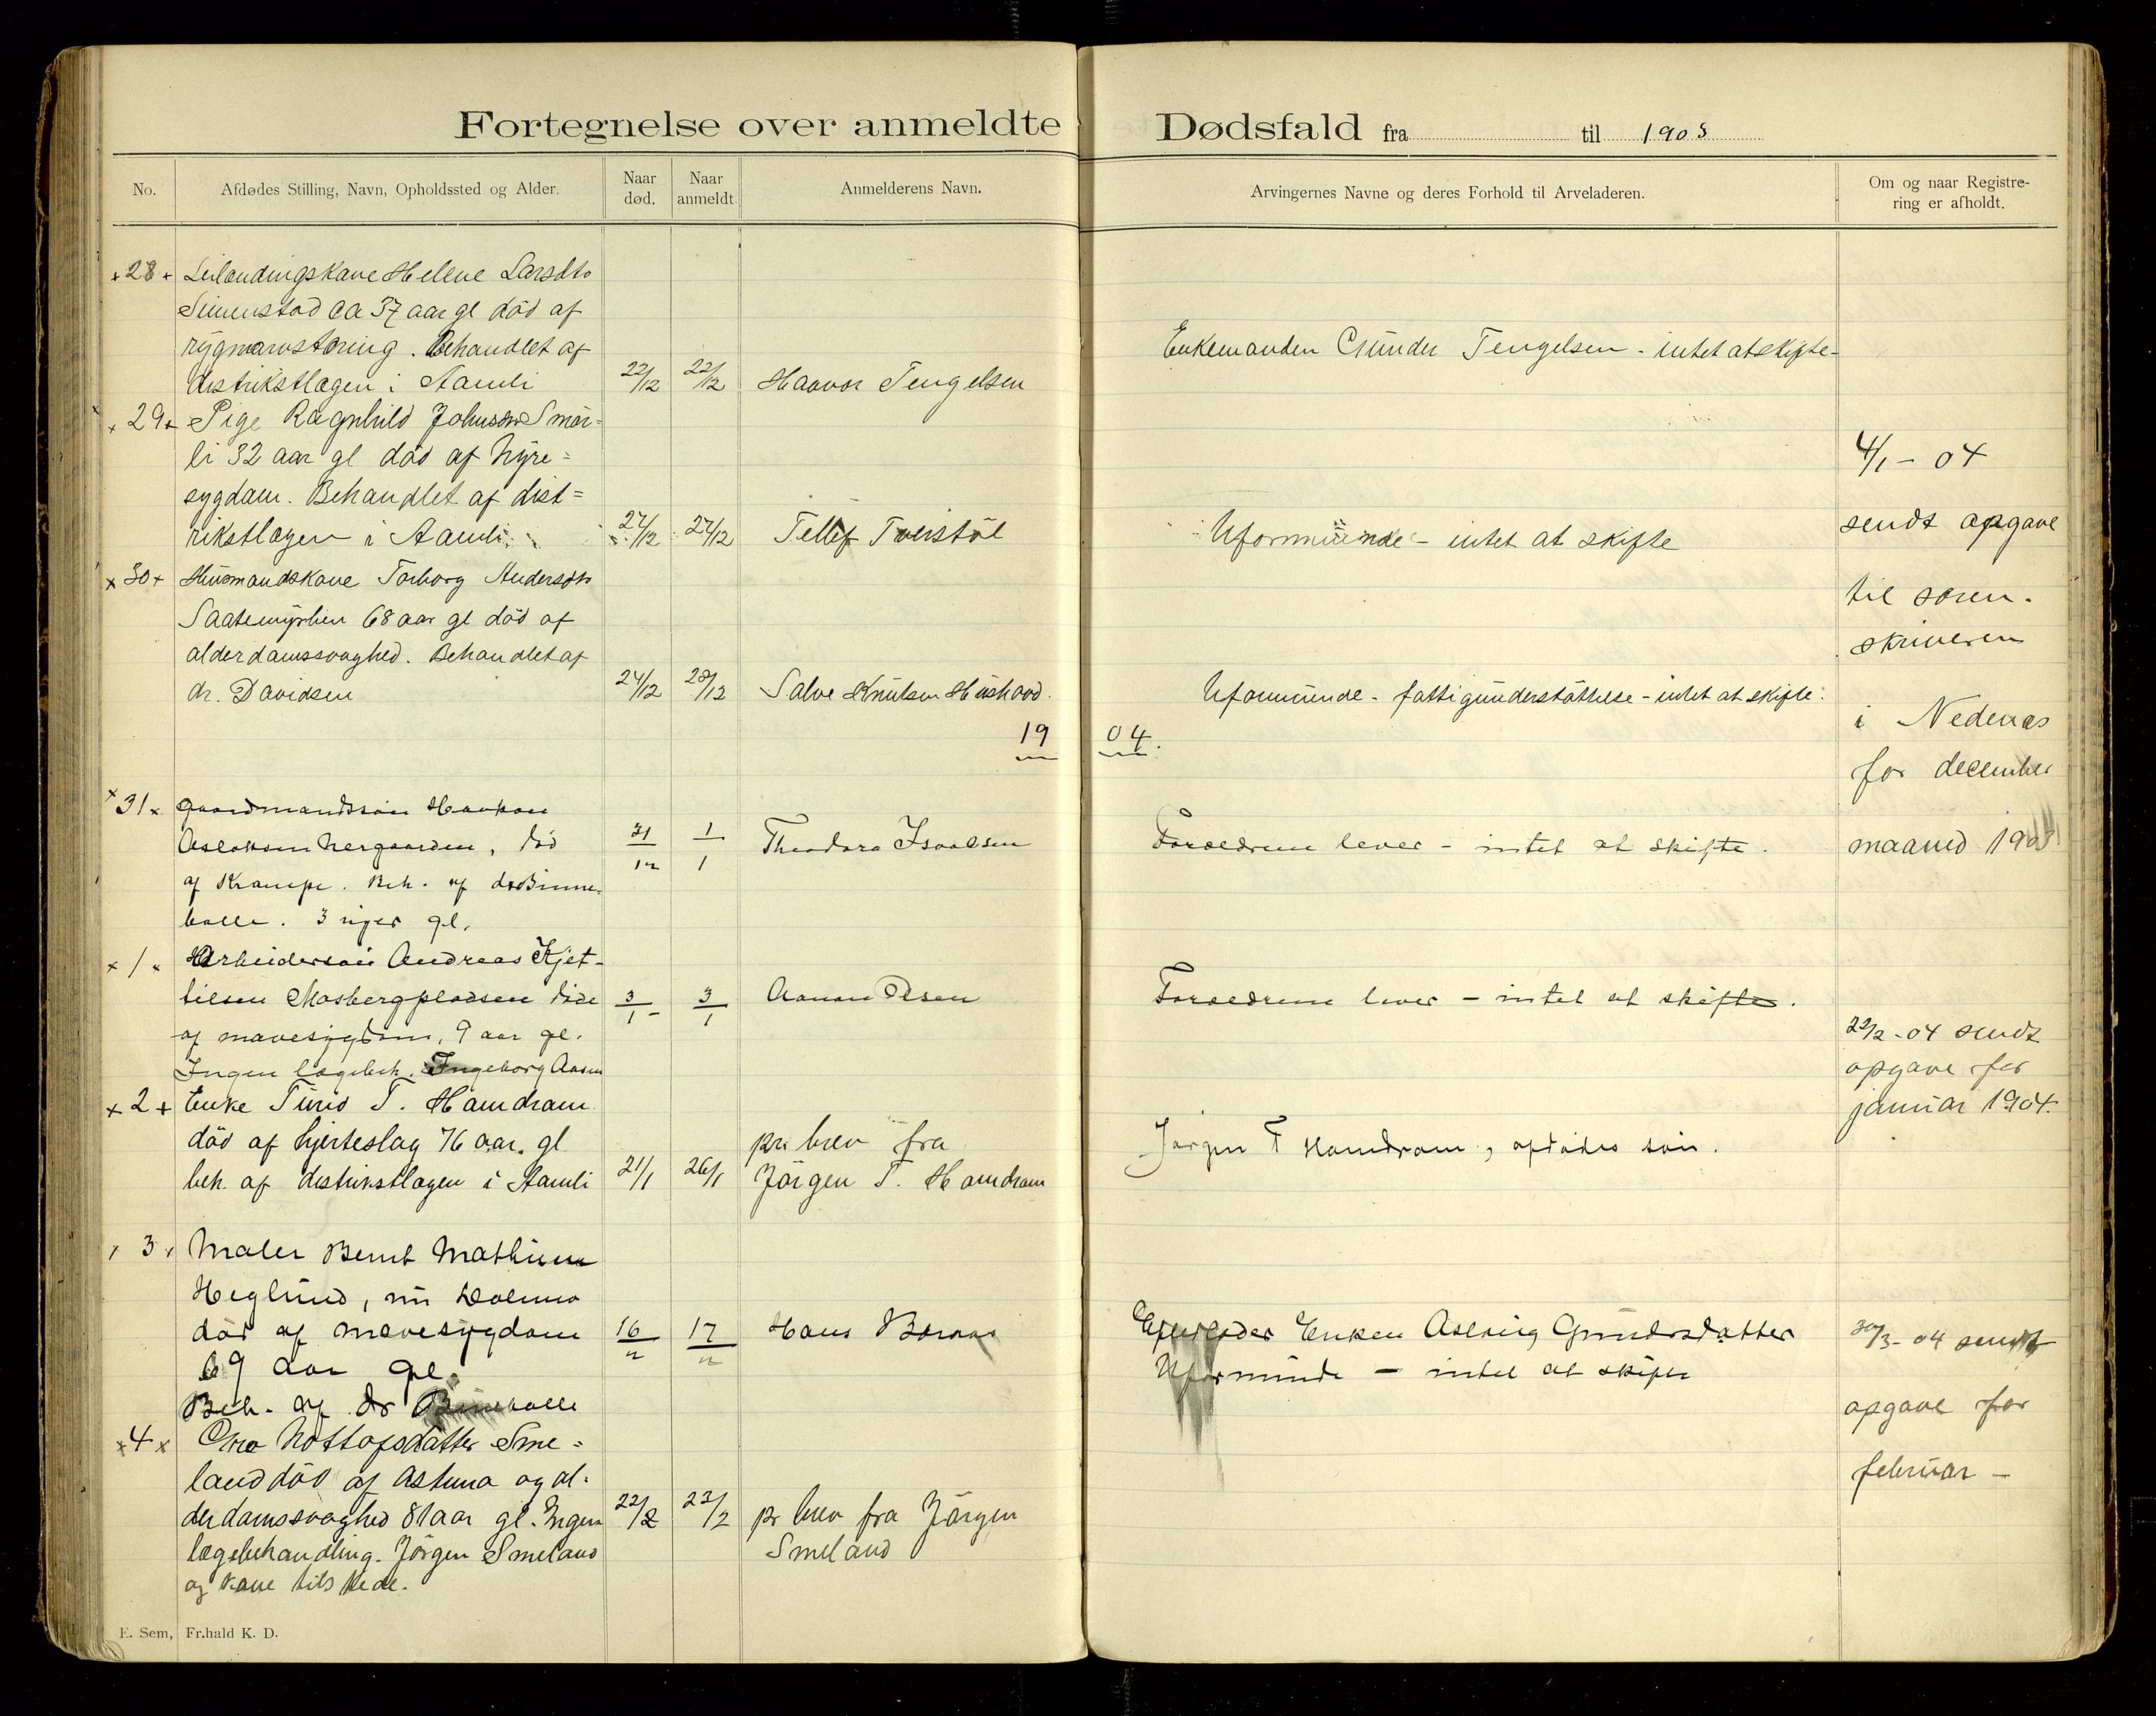 Fortegnelse over anmeldte Dødsfald fra til 1903
No.
Afdødes Stilling, Navn, Opholdssted og Alder.
Naar død.
Naar anmeldt
Anmelderens Navn.
Arvingernes Navne og deres Forhold til Arveladeren.
Om og naar Registre-
ring er afholdt.
28 Leilændingskone Helene Larsdtr
Simenstad ca 37 aar gl död af
rygmarvstæring. Behandlet af
distriktslægen i Aamli 22/12 22/12 Haavor Tengelsen
Enkemanden Gunder Tengelsen - intet at skifte-
29 Pige Ragnhild Johnsdtr Smör=
li 32 aar gl död af nyre=
sygdam. Behandlet af dist=
rikstlægen i Aamli 24/12 24/12 Tellef Tveistöl
Uformuende - intet at skifte
30 Husmandskone Torborg Andersdtr
Saatemyrlien 68 aar gl död af
alderdamssvaghed. Behandlet af
dr. Davidsen 24/12 28/12 Salve Knutsen Hushovd.
Uformuende - fattigunderstöttelse - intet at skifte.
4/1 - 04
sendt opgave
til soren-
skriveren
i Nedenæs
for december
maaned 1903
1904.
31 Gaardmandssön Haakon
Aslaksen Nergaarden, död
af Krampe. Beh. af dr Binne-
balle. 3 uger gl.
31/12 1/1 Theodora Isaalsen
Foræedrene lever - intet at skifte.
1 Arbeidersön Andreas Kjet-
tilsen Mosbergpladsen döde
af mavesygdom, 9 aar gl.
Ingen lægebeh. Ingeborg Aasen
3/1 3/1 Aanon Olsen
Foræedrene lever - intet at skifte.
22/2 - 04 sendt
opgave for
januar 1904.
2 Enke Turid T. Hamdram
död af hjerteslag 76 aar. gl
beh. af distrikstlægen i Aamli 21/1 26/1
pr. brev fra
Jörgen T. Hamdram
Jörgen T Hamdram, afdödes sön.
3 Maler Bernt Mathiesen
Heglund, nu
död af mavesygdom
69 aar gl.
Beh. af dr Binneballe
16/2 17/2 Hans
Efterlader Enken Aslaug Gundersdatter
Uformuende - intet at skifte
30/3 - 04 sendt
opgave for
februar -
4 Gro Nottofsdatter Sme=
land död af astma og al=
derdamssvaghed 81 aar gl. Ingen
lægebehandling. Jörgen Smeland
og Kone tilstede.
22/2 23/2 pr brev fra Jörgen
Smeland
E. Sem, Fr.hald K. D.